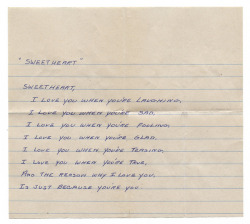 "SWEETHEART"
SWEETHEART,
I LOVE YOU WHEN YOU'RE LAUGHING,
I LOVE YOU WHEN YOU'RE SAD.
I LOVE YOU WHEN YOU'RE FOOLING,
I LOVE YOU WHEN YOU'RE GLAD.
I LOVE YOU WHEN YOU'RE TEASING,
I LOVE YOU WHEN YOU'RE TRUE,
AND THE REASON WHY I LOVE YOU,
IS JUST BECAUSE YOU'RE YOU.